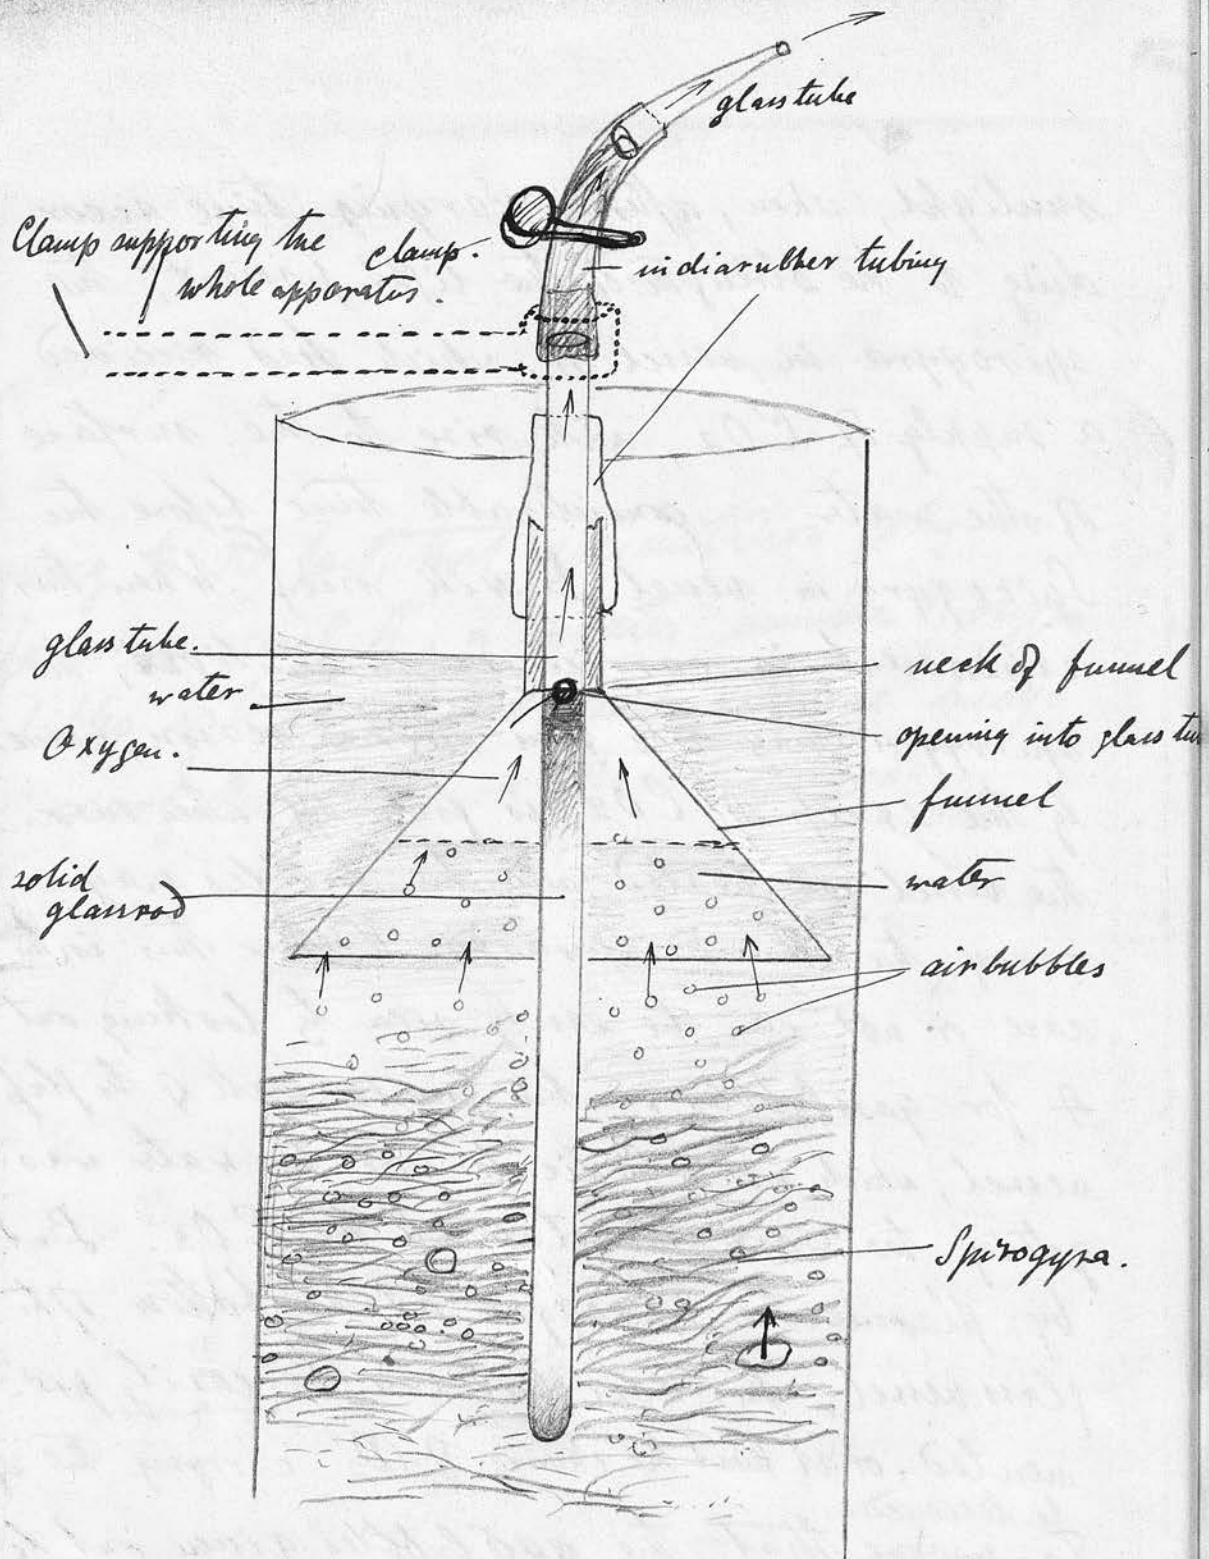 glass tube
Clamp supporting the
whole apparatus.
clamp.
indiarubber tubing
glass tube.
water
Oxygen.
solid
glass rod
neck of funnel
opening into glass tu
funnel
water
air bubbles
Spirogyra.